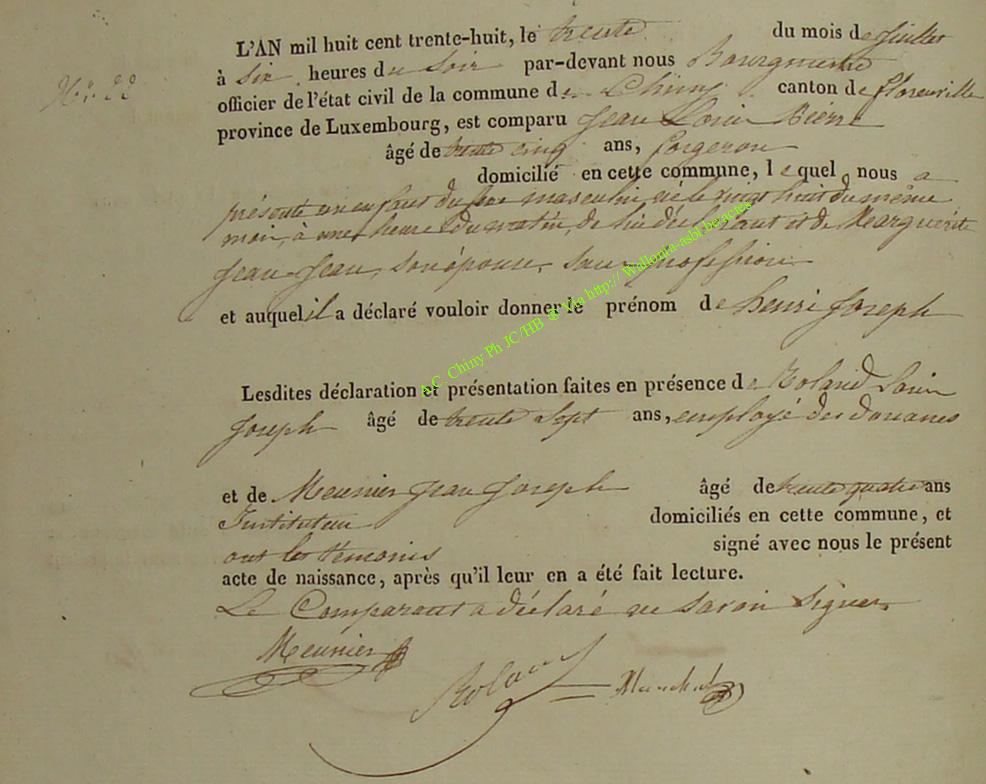 L'AN mil huit cent trente-huit, le trente du mois de Juillet
N.° 22
à Six heures du Soir par-devant nous Bourgmestre
officier de l'état civil de la commune de Chiny canton de florenville
province de Luxembourg, est comparu Jean Louis Pierre
âgé de trente cinq ans, forgeron
domicilié en cette commune, lequel nous a
présenté un enfant du sexe masculin, né le vingt huit du même
mois, à une heure du matin, de lui déclarant et de Marguerite
Jean-Jean, son épouse, sans profession
et auquel il a déclaré vouloir donner le prénom de henri Joseph
Lesdites déclaration et présentation faites en présence de Roland Louis
Joseph âgé de trente Sept ans, employé des douanes
et de Meunier Jean Joseph âgé de trente quatre ans
Instituteur domiciliés en cette commune, et
ont les témoins signé avec nous le présent
acte de naissance, après qu'il leur en a été fait lecture.
Le Comparant a déclaré ne savoir Signer
Meunier
Roland
A.C. Chiny Ph JC/HB @ Via http://Wallonia-asbl.be.actes